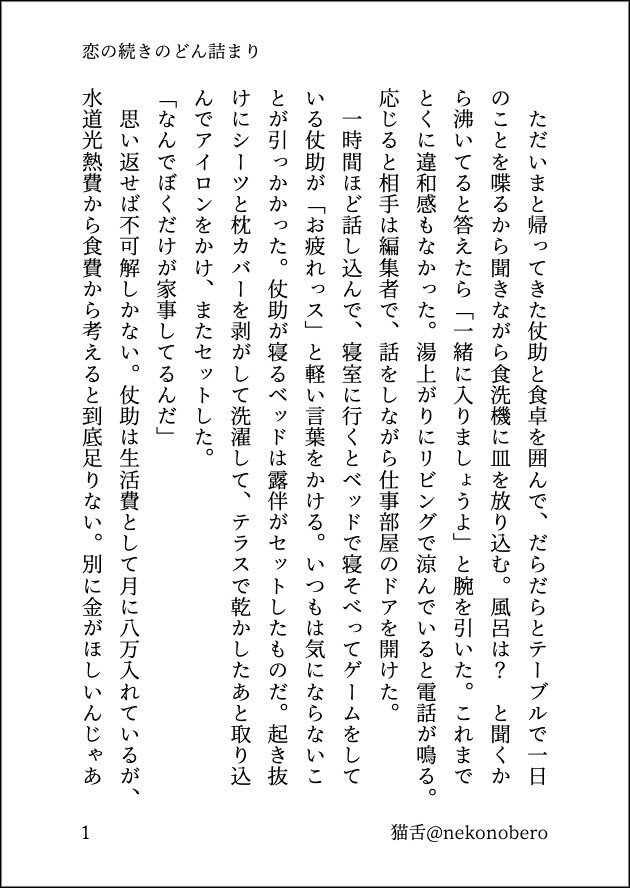 恋の続きのどん詰まり
　ただいまと帰ってきた仗助と食卓を囲んで、だらだらとテーブルで一日
のことを喋るから聞きながら食洗機に皿を放り込む。風呂は？　と聞くか
ら沸いてると答えたら「一緒に入りましょうよ」と腕を引いた。これまで
とくに違和感もなかった。湯上がりにリビングで涼んでいると電話が鳴る。
応じると相手は編集者で、話をしながら仕事部屋のドアを開けた。
　一時間ほど話し込んで、寝室に行くとベッドで寝そべってゲームをして
いる仗助が「お疲れっス」と軽い言葉をかける。いつもは気にならないこ
とが引っかかった。仗助が寝るベッドは露伴がセットしたものだ。起き抜
けにシーツと枕カバーを剥がして洗濯して、テラスで乾かしたあと取り込
んでアイロンをかけ、またセットした。
「なんでぼくだけが家事してるんだ」
　思い返せば不可解しかない。仗助は生活費として月に八万入れているが、
水道光熱費から食費から考えると到底足りない。別に金がほしいんじゃあ
1
猫舌@nekonobero